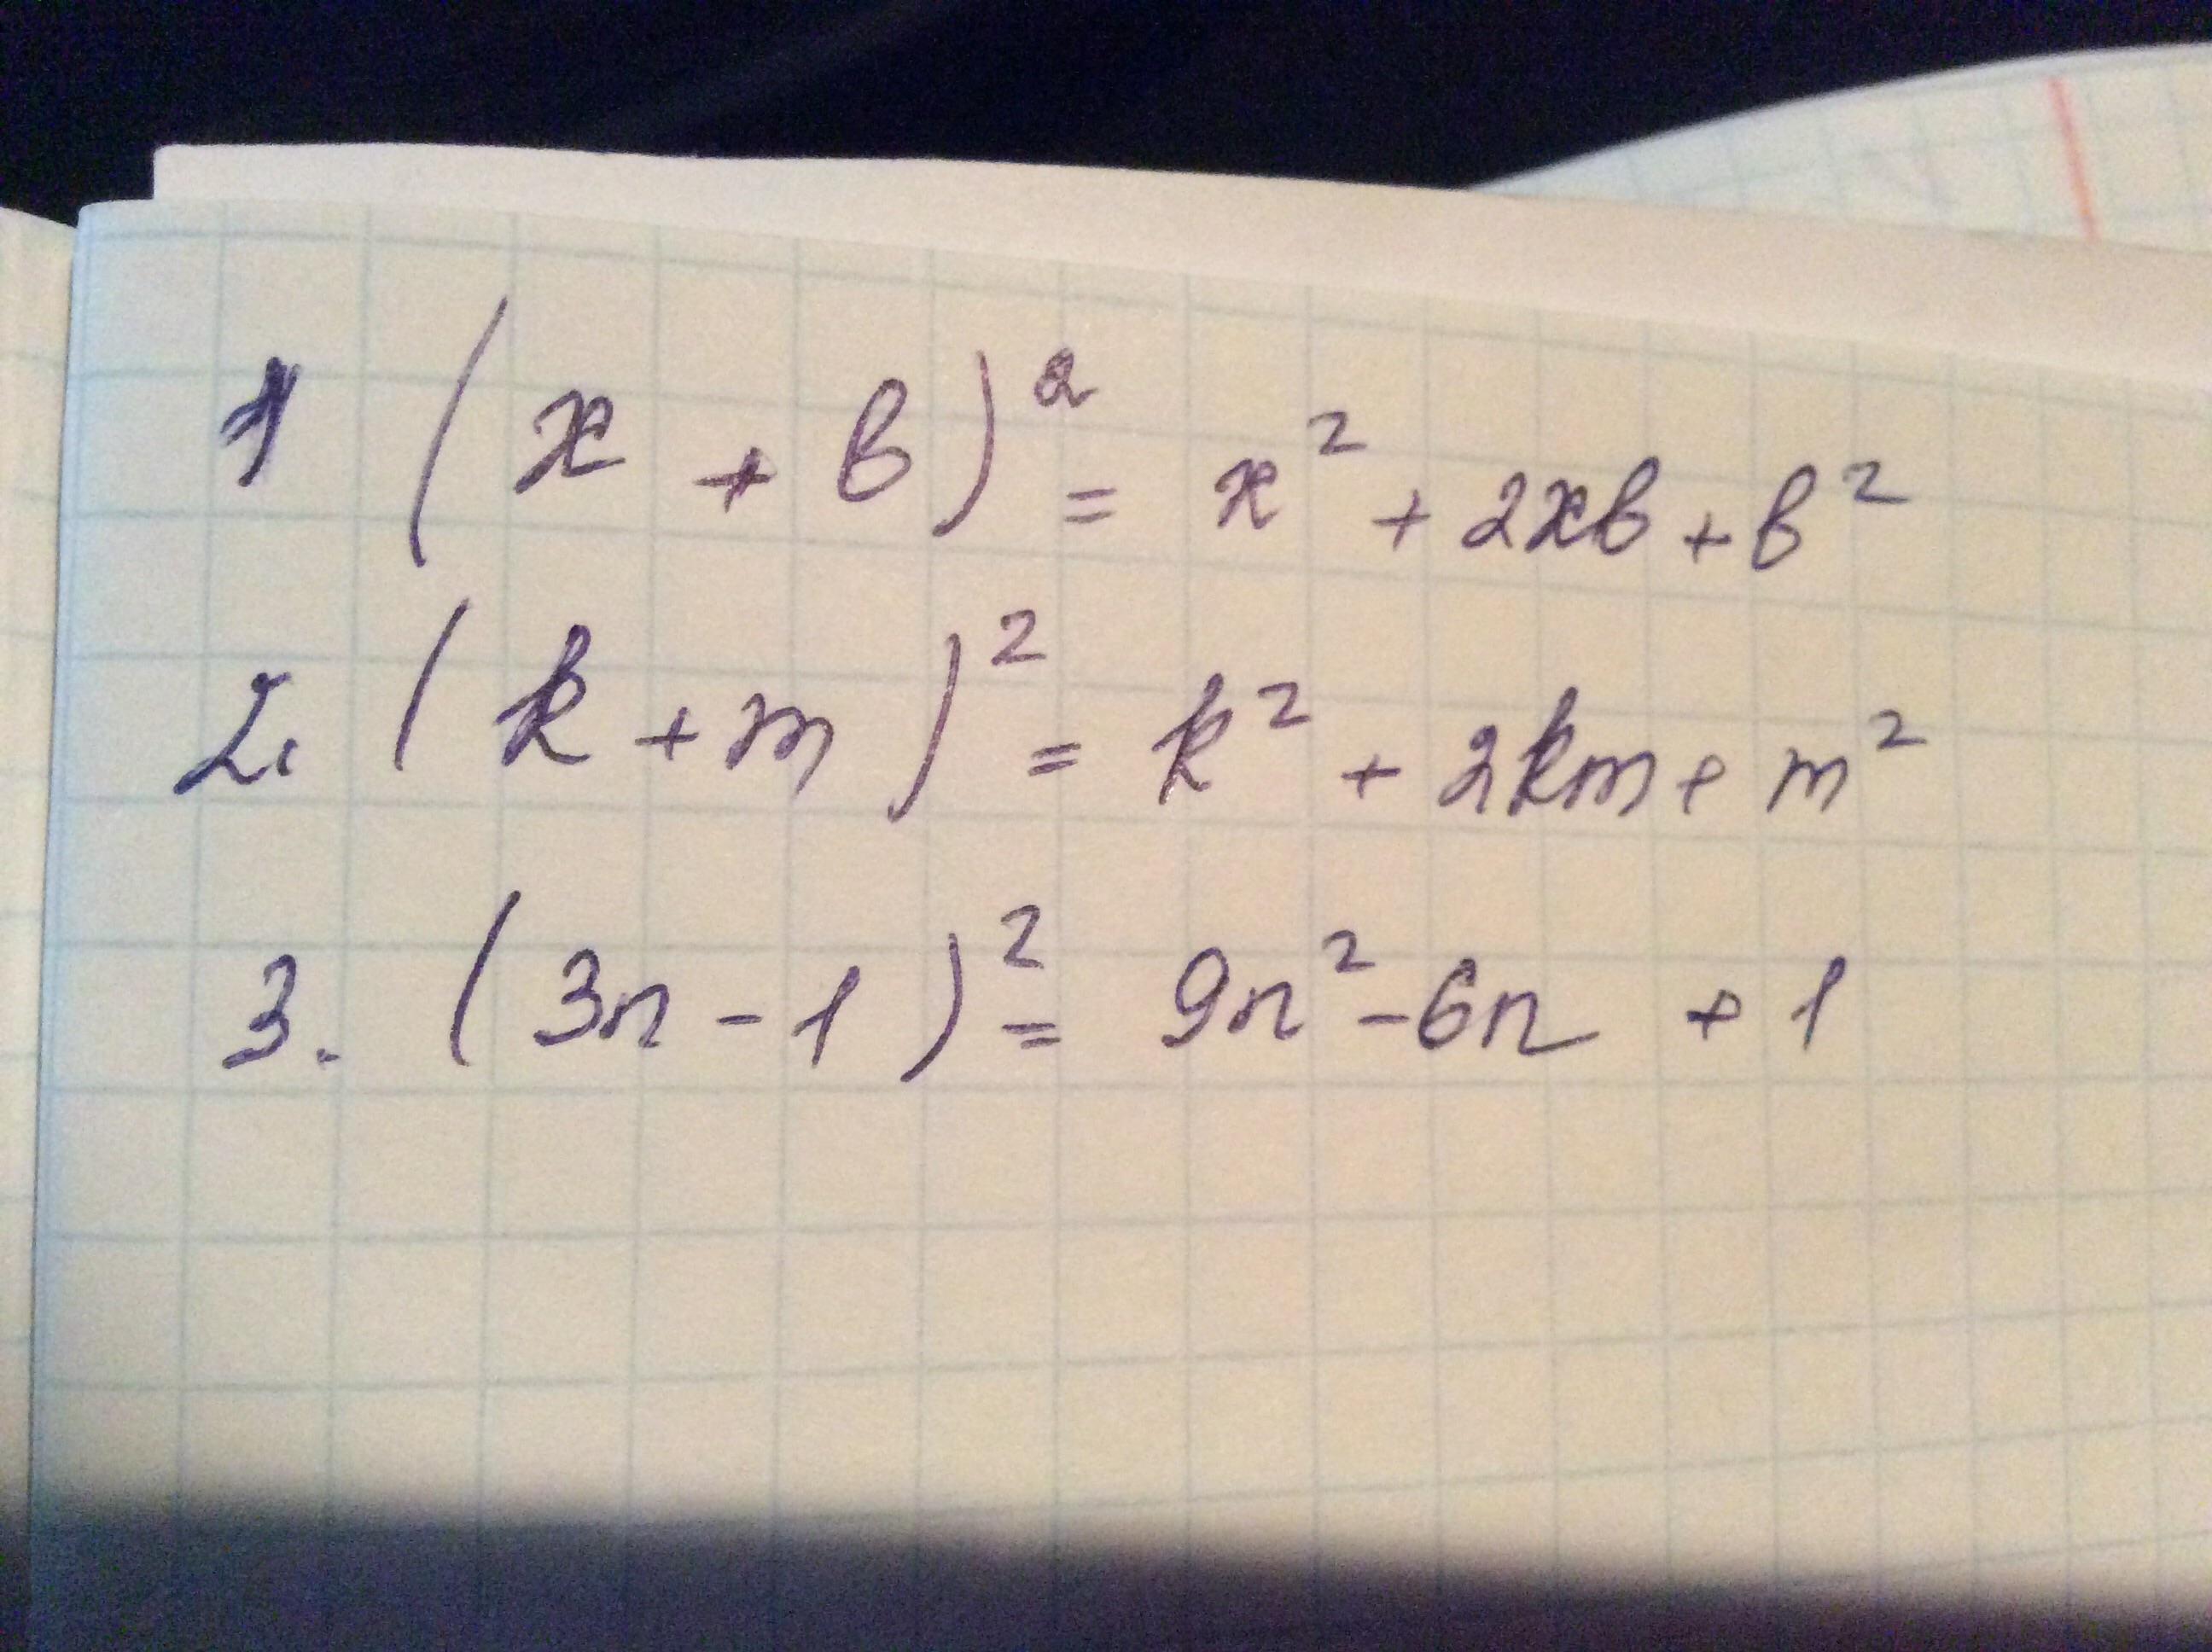 1 (x + b)² = x² + 2xb + b²
2. (k + m)² = k² + 2km + m²
3. (3n - 1)² = 9n² - 6n + 1